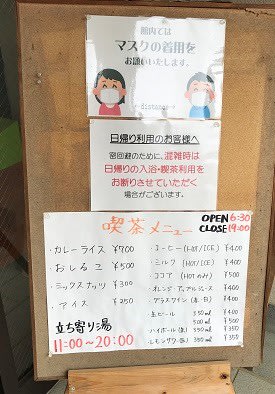 館内では
マスクの着用を
お願いいたします。
distance
日帰り利用のお客様へ
密回避のために、混雑時は
日帰りの入浴・喫茶利用を
お断りさせていただく
場合がございます。
喫茶メニュー
OPEN 6:30
CLOSE 19:00
・カレーライス ¥700
・おしるこ ¥500
・ミックスナッツ ¥300
・アイス ¥250
立ち寄り湯
11:00~20:00
・コーヒー(HOT/ICE) ¥400
・ミルク(HOT/ICE) ¥400
・ココア(HOTのみ) ¥500
・オレンジ・アップルジュース ¥400
・グラスワイン(赤/白) ¥400
・缶ビール 350ml ¥400
ハイボール(缶) 350ml ¥350
レモンサワー(缶) 350ml ¥350